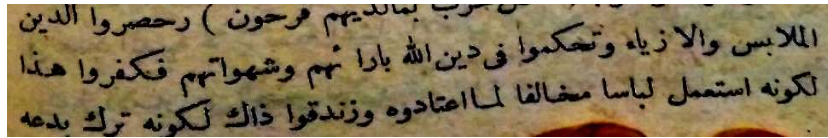 حزب بمالديهم فرحون ) رحصروا الدين
الملابس والازياء وتحكموا فى دين الله بارائهم وشهواتهم فكفروا هذا
لكونه استعمل لباسا مخالفا لما اعتادوه وزندقوا ذاك لكونه ترك بدعه